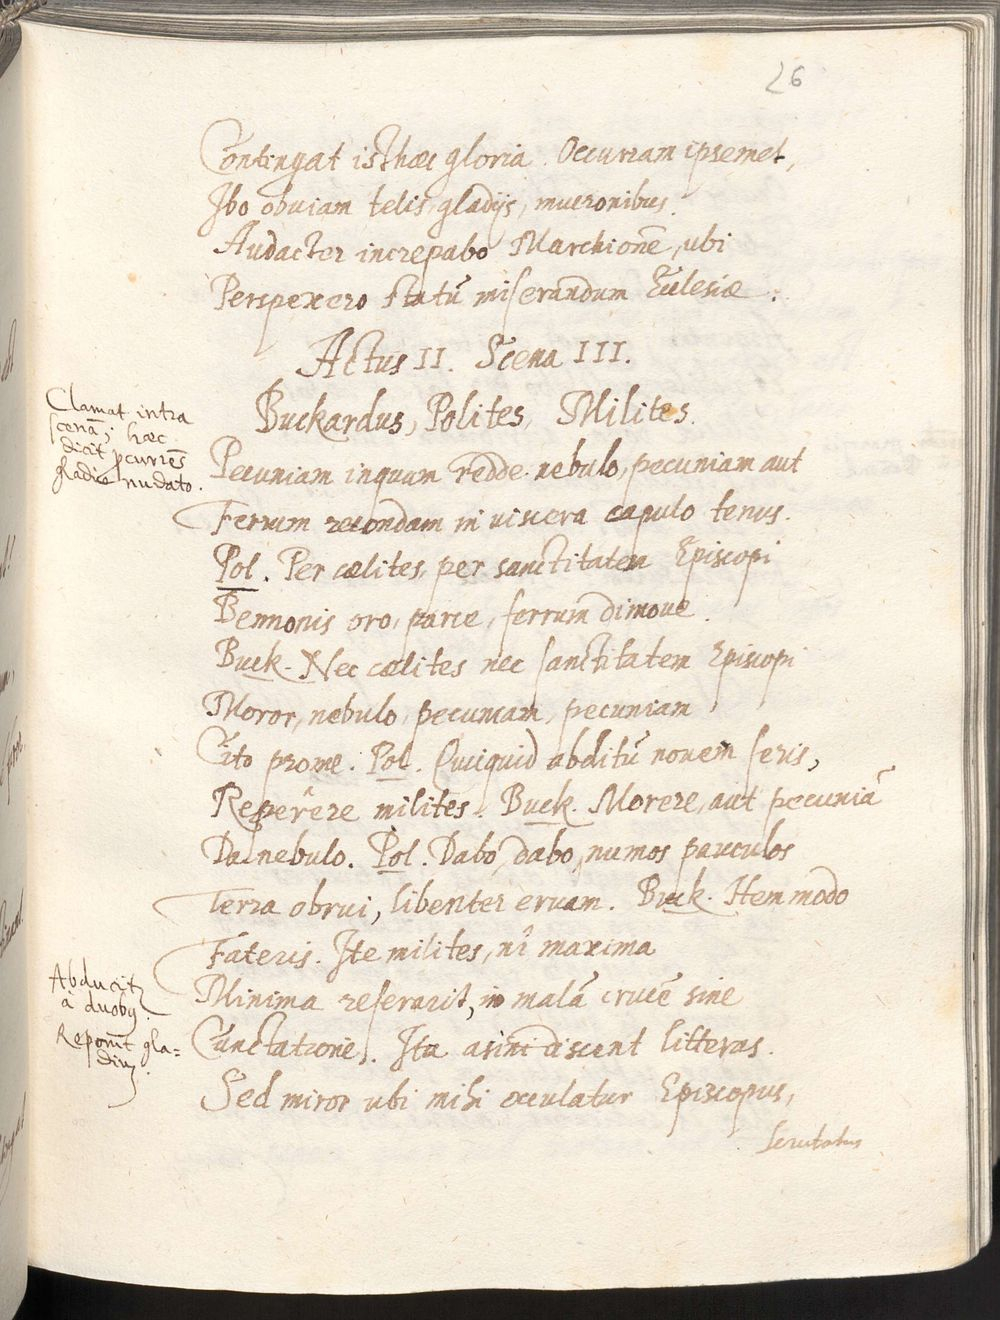 26
Contingat isthaec gloria. Occurram ipsemet,
Ibo obuiam telis, gladijs, mucronibus.
Audacter increpabo Marchionē, ubi
Perspexero statū miserandum Ecclesiæ.
Actus II. Scena III.
Buckardus, Polites, Milites.
Clamat intra
scenā; hæc
dicit ꝓcurrēs
gladio nudato.
Pecuniam inquam redde nebulo, pecuniam aut
Ferrum recondam in uiscera capulo tenus.
Pol. Per cælites, per sanctitatem Episcopi
Bennonis oro, parce, ferrum dimoue.
Buck. Nec cælites nec sanctitatem Episcopi
Moror, nebulo, pecuniam, pecuniam
Cito prome. Pol. Quicquid abditū nouem seris,
Reperêre milites. Buck. Morere, aut pecuniā
Da nebulo. Pol. Dabo, dabo, numos pauculos
Terra obrui, libenter eruam. Buck. Item modo
Fateris. Ite milites, nî maxima
Abducitr
à duobꝫ.
Minima reserarit, in malā crucē sine
Reponit gla=
diū.
Cunctatione. Ita asini discent litteras.
Sed miror ubi mihi occulatur Episcopus,
scrutatus